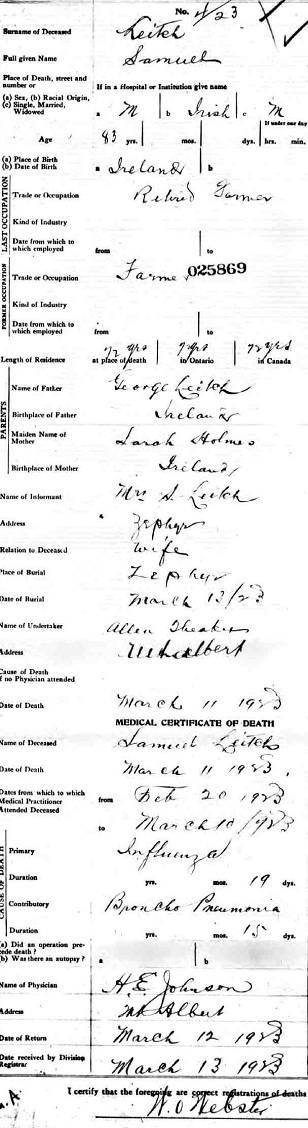 No. 4/23
Surname of Deceased Leitch
Full given Name Samuel
Place of Death, street and number or
If in a Hospital or Institution give name
(a) Sex, (b) Racial Origin, (c) Single, Married, Widowed a M b Irish c M
If under one day
Age 83 yrs. mos. dys. hrs. min.
(a) Place of Birth
(b) Date of Birth a Ireland b
LAST OCCUPATION
Trade or Occupation Retired Farmer
Kind of Industry
Date from which to which employed from to
FORMER OCCUPATION
Trade or Occupation Farmer 025869
Kind of Industry
Date from which to which employed from to
Length of Residence 72 yrs at place of death yrs in Ontario 72 yrs in Canada
PARENTS
Name of Father George Leitch
Birthplace of Father Ireland
Maiden Name of Mother Sarah Holmes
Birthplace of Mother Ireland
Name of Informant Mrs S. Leitch
Address Zephyr
Relation to Deceased Wife
Place of Burial Zephyr
Date of Burial March 13/23
Name of Undertaker Allen Theaker
Address Mt Albert
Cause of Death
if no Physician attended
Date of Death March 11 1923
MEDICAL CERTIFICATE OF DEATH
Name of Deceased Samuel Leitch
Date of Death March 11 1923.
Dates from which to which Medical Practitioner Attended Deceased from Feb 20 1923
to March 10/1923
CAUSE OF DEATH
Primary Influenza
Duration yrs. mos. 19 dys.
Contributory Broncho Pneumonia
Duration yrs. mos. 15 dys.
(a) Did an operation precede death?
(b) Was there an autopsy? a b
Name of Physician H.E. Johnson
Address Mt Albert
Date of Return March 12 1923
Date received by Division Registrar March 13 1923
I certify that the foregoing are correct registrations of deaths
W. O Webster